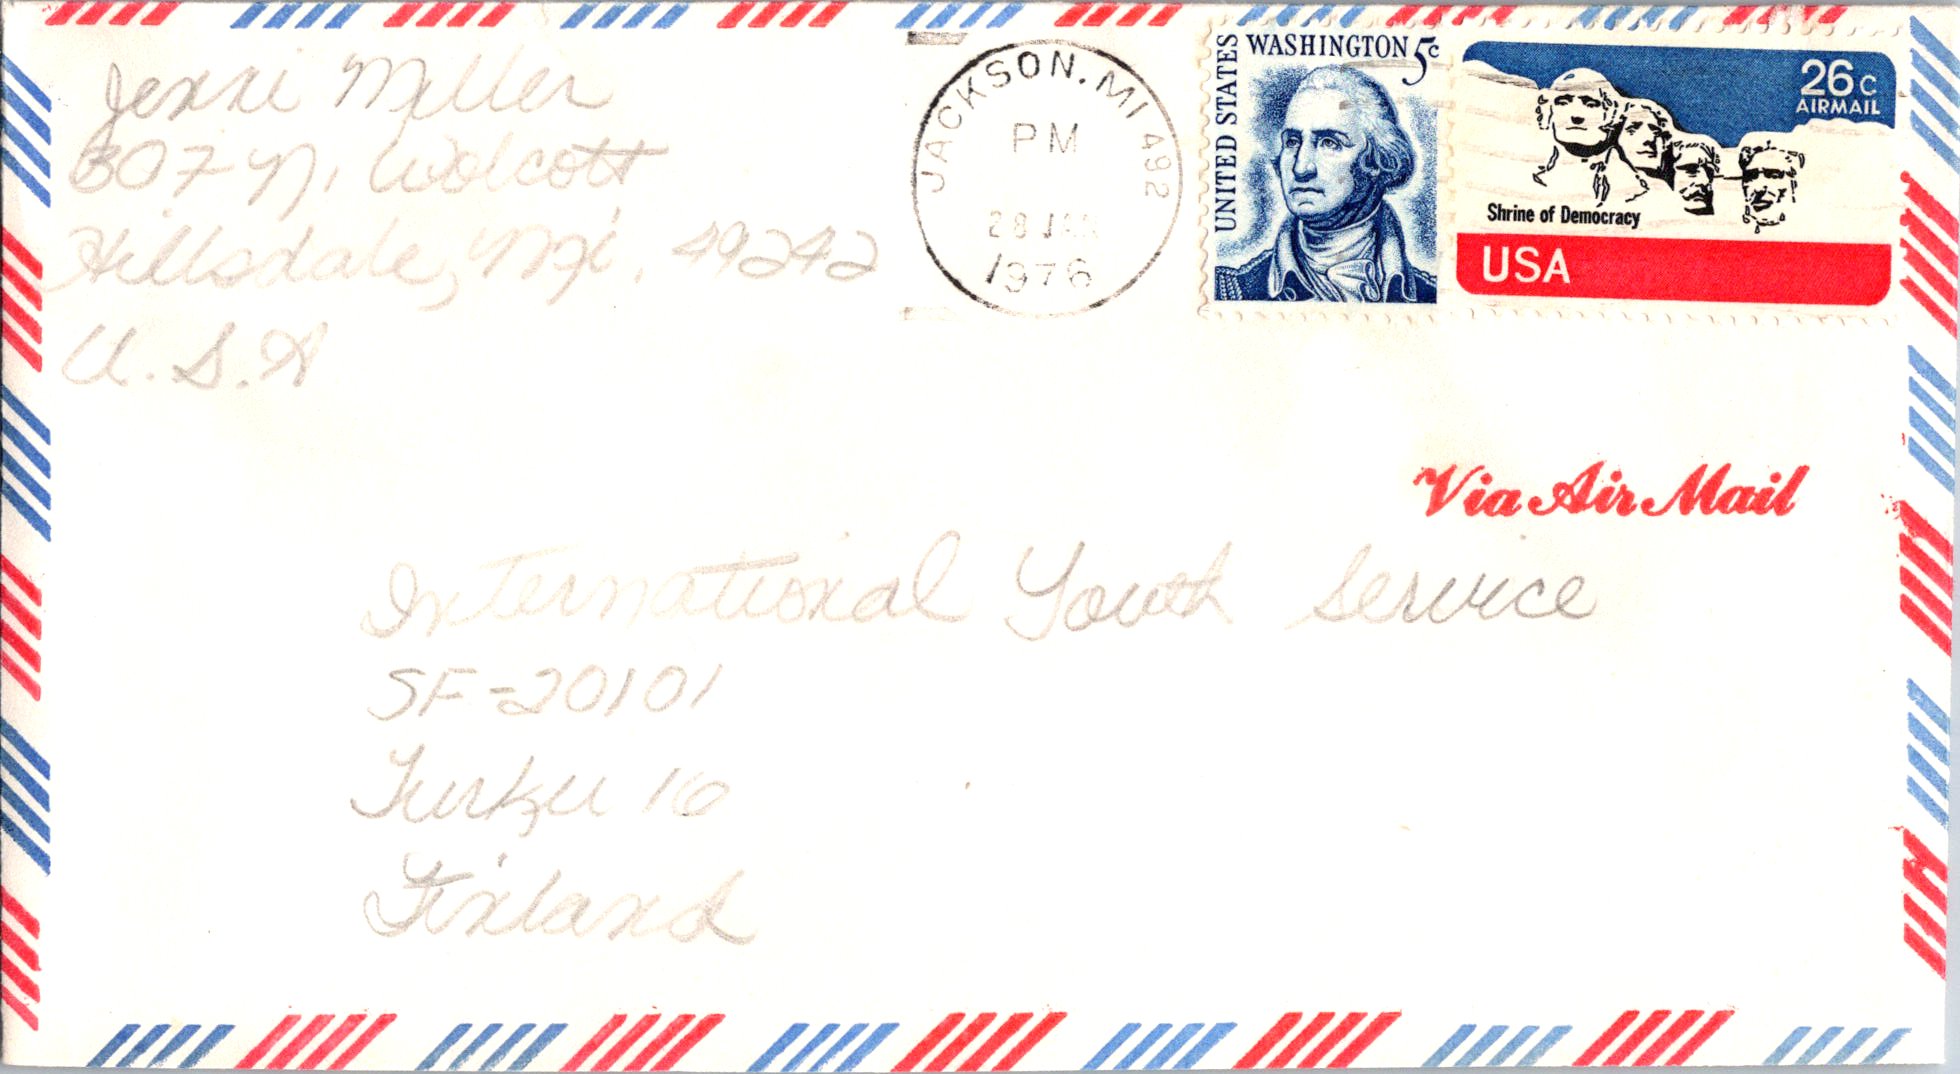 Jenni Miller
307 N. Wolcott
Hillsdale, Mi. 49242
U.S.A
JACKSON, MI 492
PM
28 JAN
1976
UNITED STATES
WASHINGTON 5c
26c
AIRMAIL
Shrine of Democracy
USA
Via Air Mail
International Youth Service
SF-20101
Turku 10
Finland